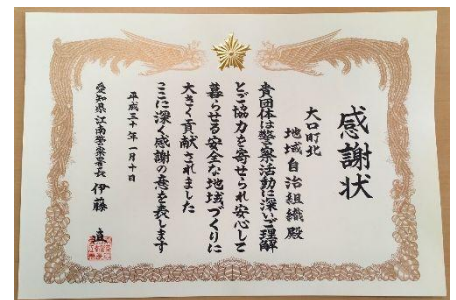 感謝状
大口町北
地域自治組織殿
貴団体は警察活動に深いご理解
とご協力を寄せられ安心して
暮らせる安全な地域づくりに
大きく貢献されました
ここに深く感謝の意を表します
平成三十年一月十日
愛知県江南警察署長 伊藤 直